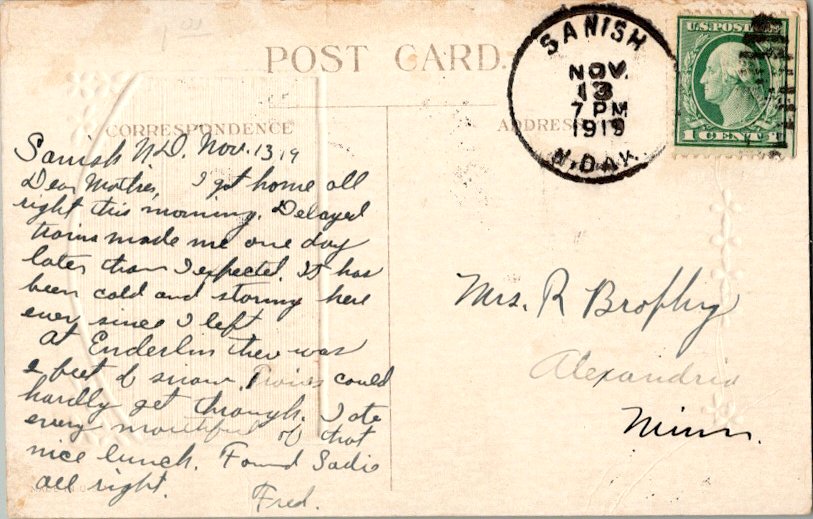 POST CARD.
CORRESPONDENCE
ADDRESS
SANISH
NOV.
13
7 PM
1919
N. DAK.
U.S. POSTAGE
1 CENT 1
Sanish N.D. Nov. 13, 19
Dear Mother, I got home all
right this morning. Delayed
trains made me one day
later than I expected. It has
been cold and stormy here
ever since I left
At Enderlin there was
2 feet of snow. Trains could
hardly get through. I ate
every mouthful of that
nice lunch. Found Sadie
all right.
Fred.
Mrs. R Brophy
Alexandria
Minn.